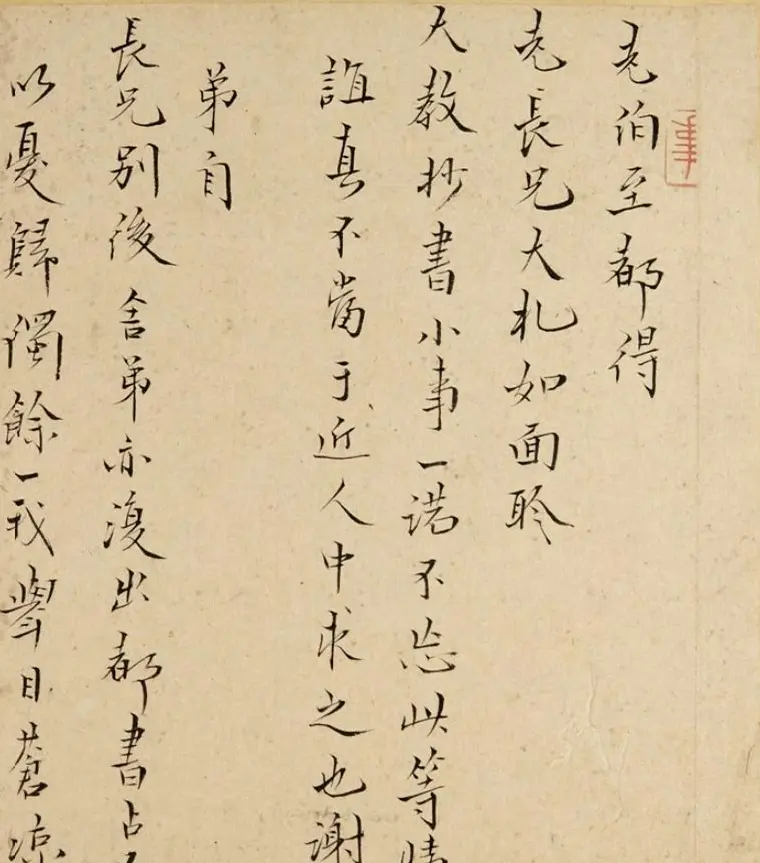 老伯至都得
老長兄大札如面聆
大教抄書小事一諾不忘此等情
誼真不當于近人中求之也謝
弟自
長兄別後舍弟亦復出都書占
以憂歸獨餘一我舉目蒼涼